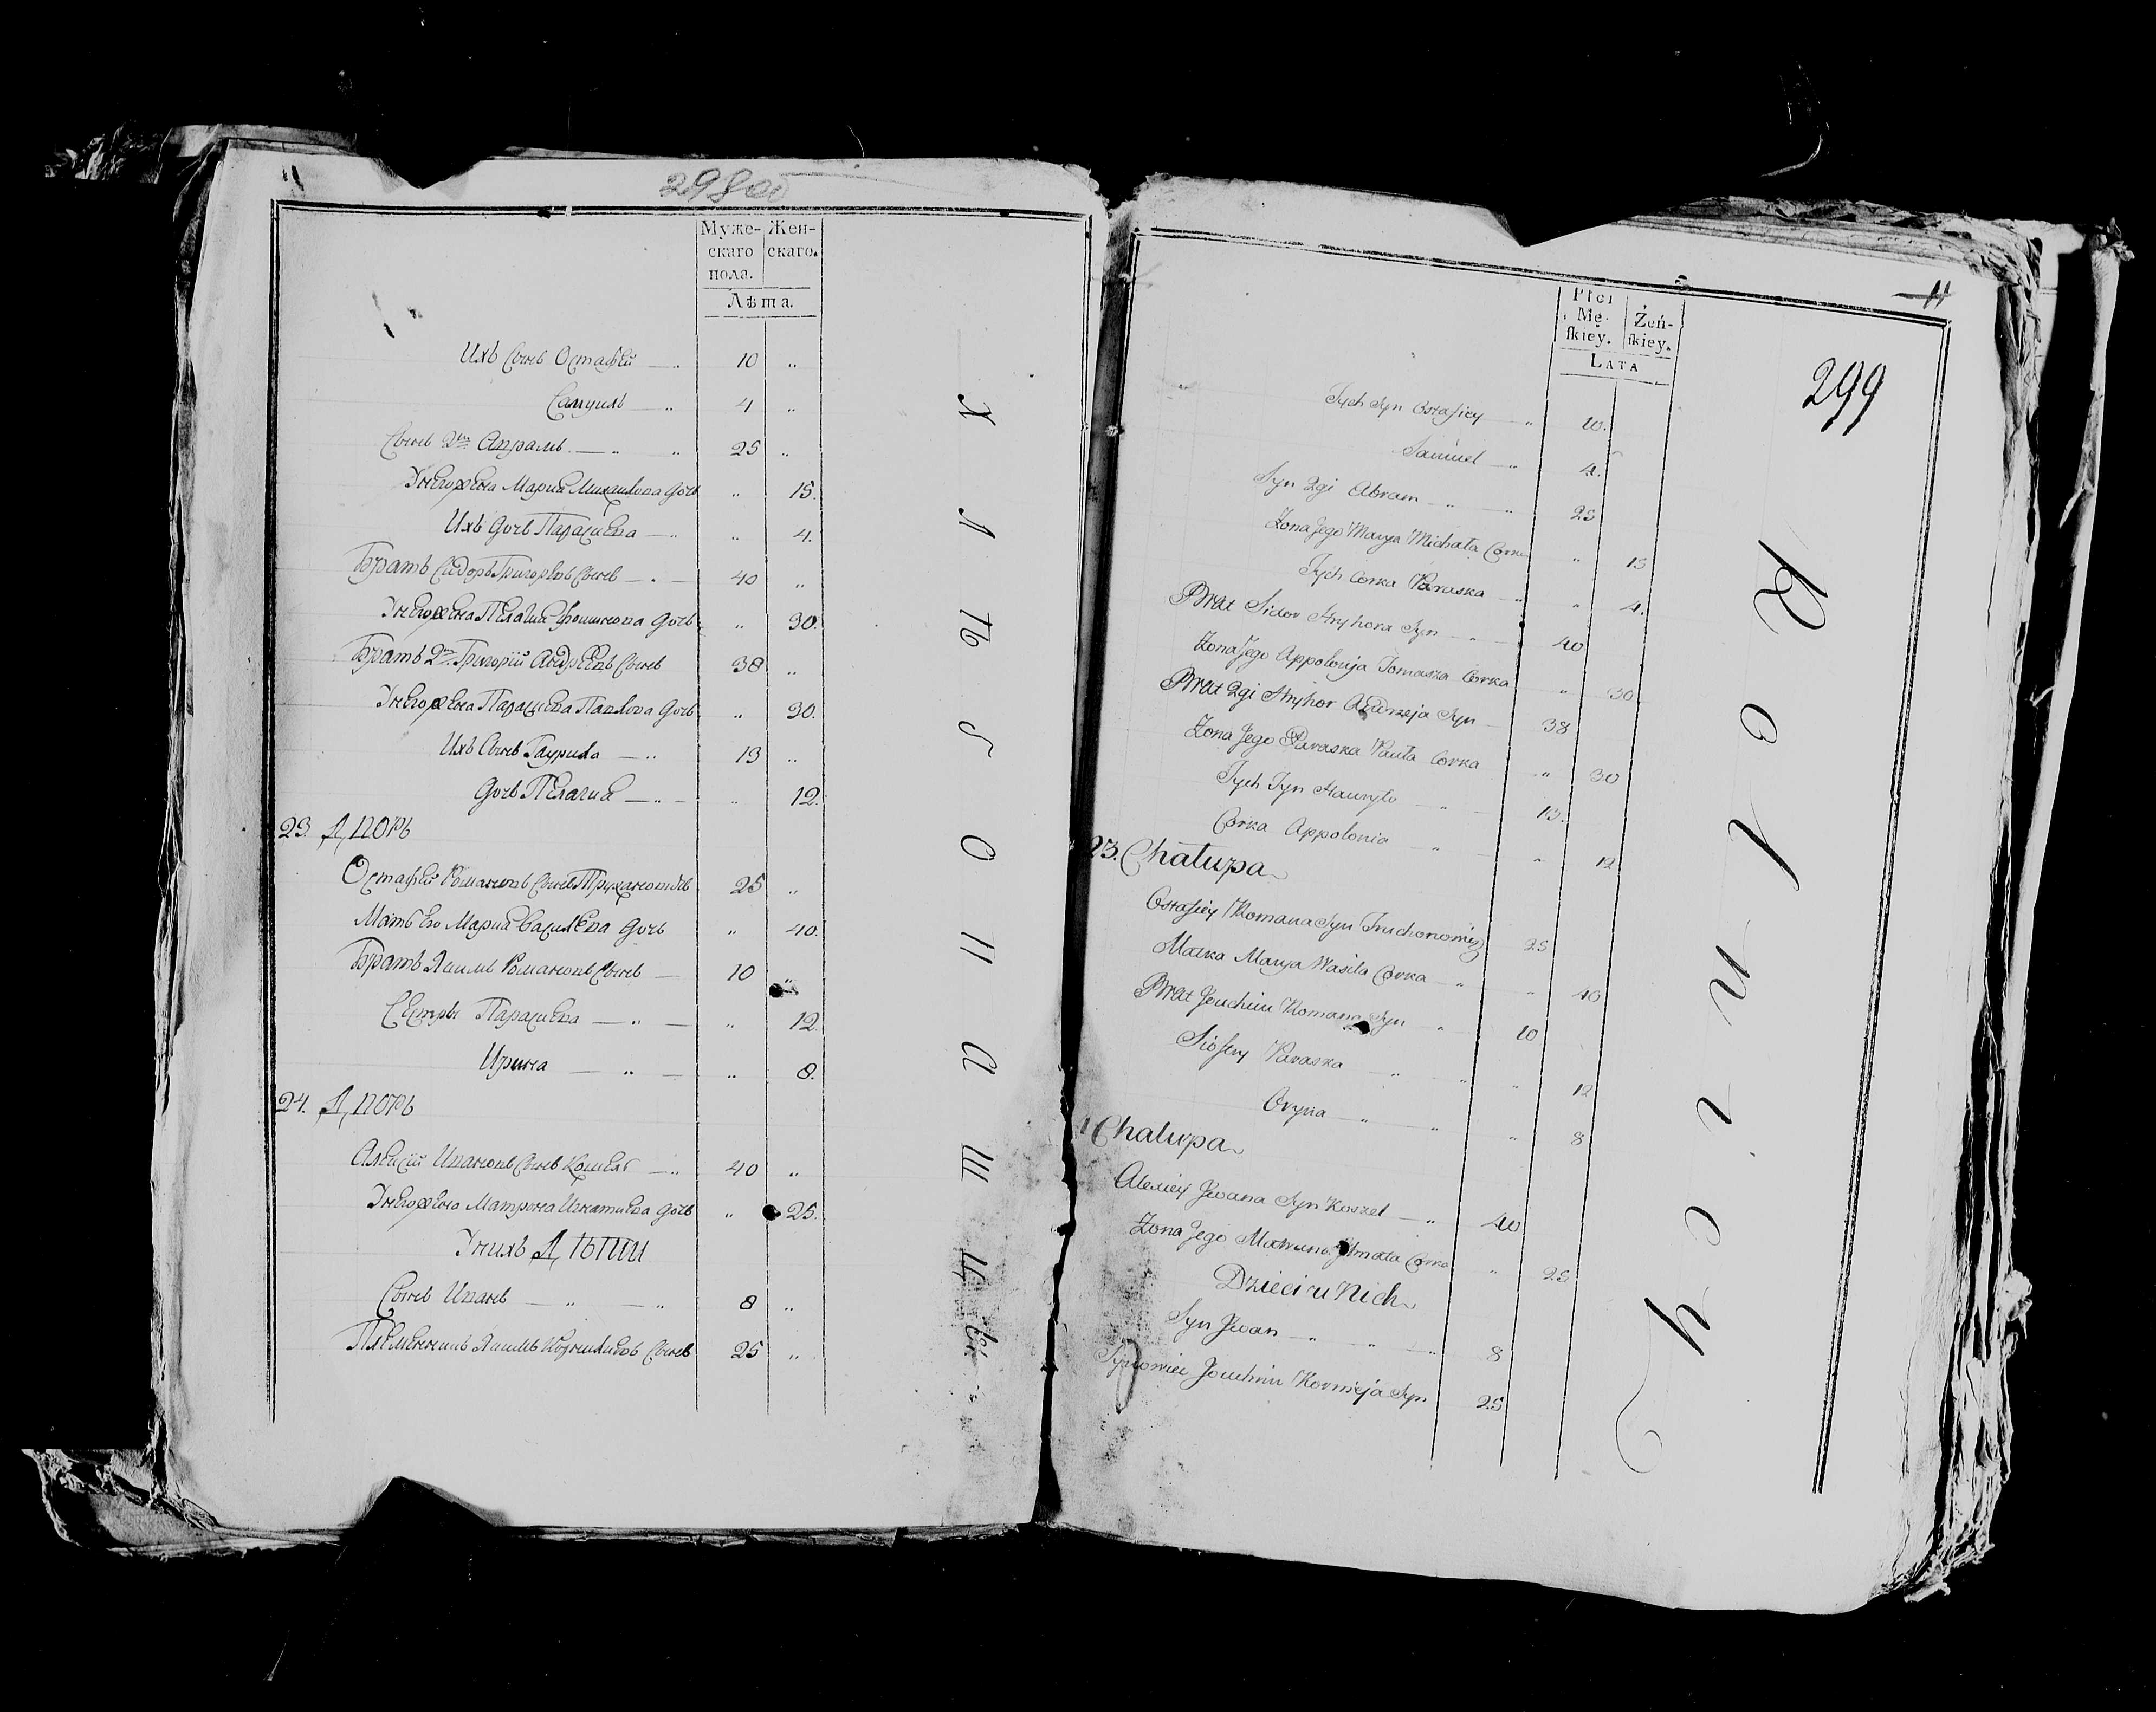 11
298об
Муже-
скаго
пола.
Жен-
скаго.
Лѣта.
Ихъ Сынъ Остафей — „ 10 „
Самуилъ — „ 4 „
Сынъ 2й Апрамъ — „ „ 25 „
У него жена Мария Михаилова дочь „ 15.
Ихъ дочь Парасцева — „ „ 4.
Братъ Сидоръ Григорьевъ Сынъ — „ — 40 „
У него жена Пелагия дочь „ 30.
Братъ 2й Григорій Андреевъ Сынъ 38 „
У него жена Парасцева Павлова дочь „ 30.
Ихъ Сынъ Гаурила — „ 13 „
Дочь Пелагия — „ — „ 12.
23. Дворъ
Остафей Романовъ Сынъ Трухановичъ 25 „
Мать его Мария Василева дочь „ 40.
Братъ Якимъ Романовъ Сынъ — 10 „
Сестры Парасцева — „ — „ 12.
Ирина — „ — „ 8.
24. Дворъ
Алексій Ивановъ Сынъ Кошель — „ 40 „
У него жена Матрона Игнатиева дочь „ 25.
У нихъ Дѣти
Сынъ Иванъ — „ — „ 8 „
Племянникъ Якимъ Сынъ 25 „
Х л ѣ б о п а ш ц ы
11
Płci
Mę-
ſkiey.
Żeń-
ſkiey.
Lata
299
Tych Syn Ostafiey — „ 10.
Samuel — „ 4.
Syn 2gi Abram — „ „ 25
Żona Jego Marya Michała Corka „ 15
Tych Corka Paraska — „ „ 4.
Brat Sidor Hryhora Syn — „ — 40
Żona Jego Appolonja Tomasza Corka „ 30.
Brat 2gi Hryhor Andrzeja Syn — 38
Żona Jego Paraska Pauła Corka „ 30
Tych Syn Hauryło — „ — 13.
Corka Appolonia — „ — „ 12
23. Chałupa
Ostafiey Romana Syn Truchonowicz 25
Matka Marya Wasila Corka — „ „ 40
Brat Jouchim Romana Syn „ 10
Siostry Paraska — „ — „ „ 12
Oryna — „ — „ „ 8
Chałupa
Alexiey Jwana Syn Koszel — „ 40
Żona Jego Corka „ 25
Dzieci u Nich
Syn Jwan — „ — „ — „ 8
Synowiec Jouchim Kornieja Syn 25
R o l n i c y